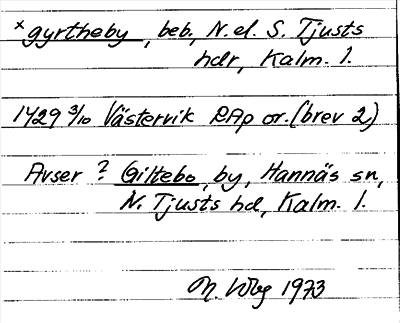 ×gyrtheby, beb., N. el. S. Tjusts
hdr, Kalm. l.
1429 3/10 Västervik RAp or. (brev 2)
Avser ? Giltebo, by, Hannäs sn,
N. Tjusts hd, Kalm. l.
M. Wbg 1973